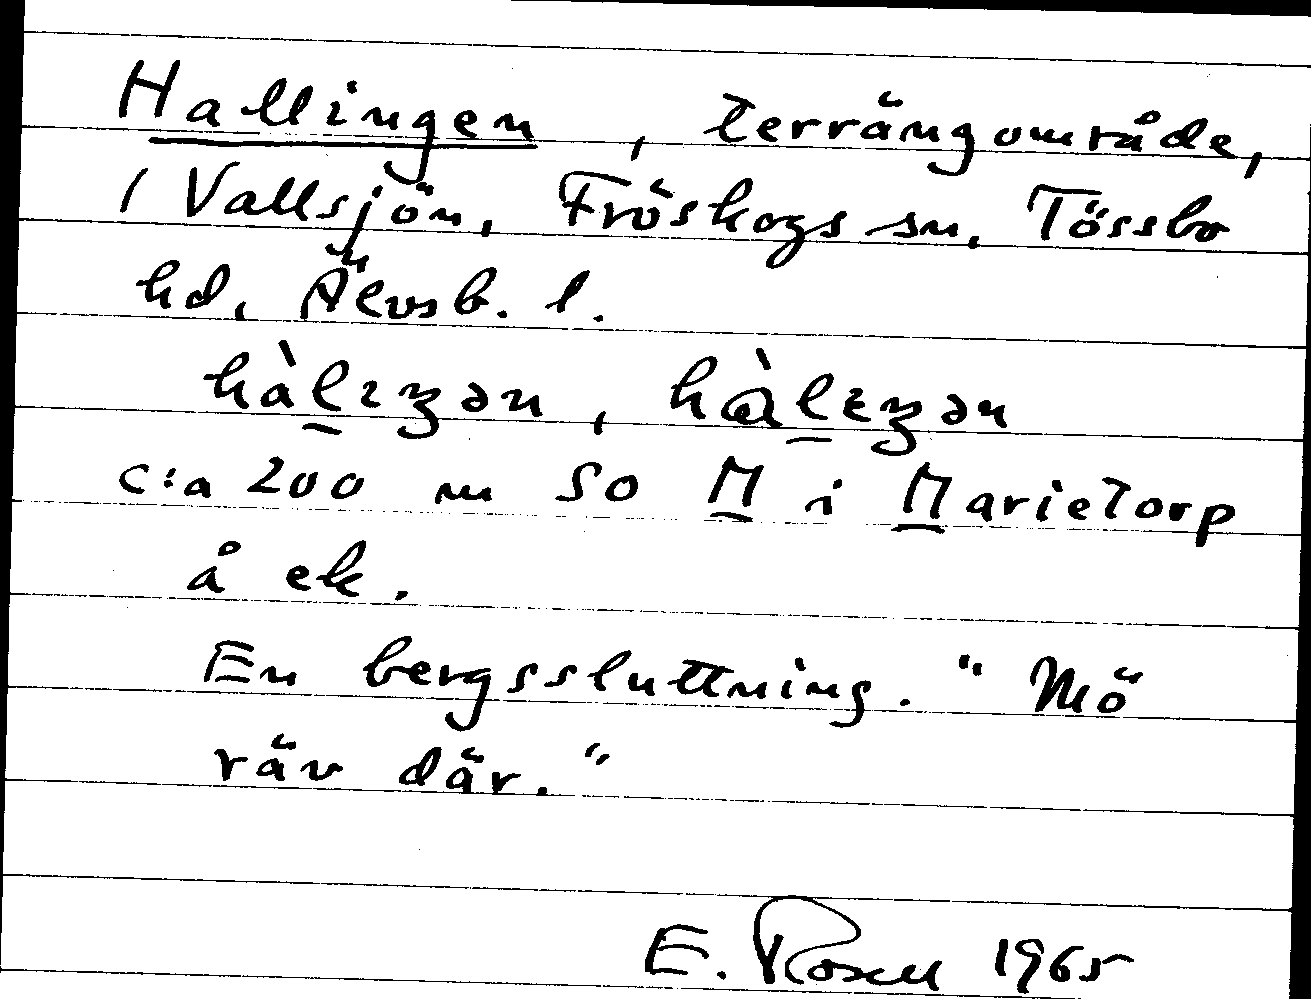 Hallingen, terrängområde,
/ Vallsjön, Fröskogs sn, Tössbo
hd, Älvsb. l.
hàl̠ɪŋən, hɑ̀l̠ɪŋən
c:a 200 m SO M̲ i M̲arietorp
å ek.
En bergssluttning. "Mö
räv där."
E. Rosell 1965